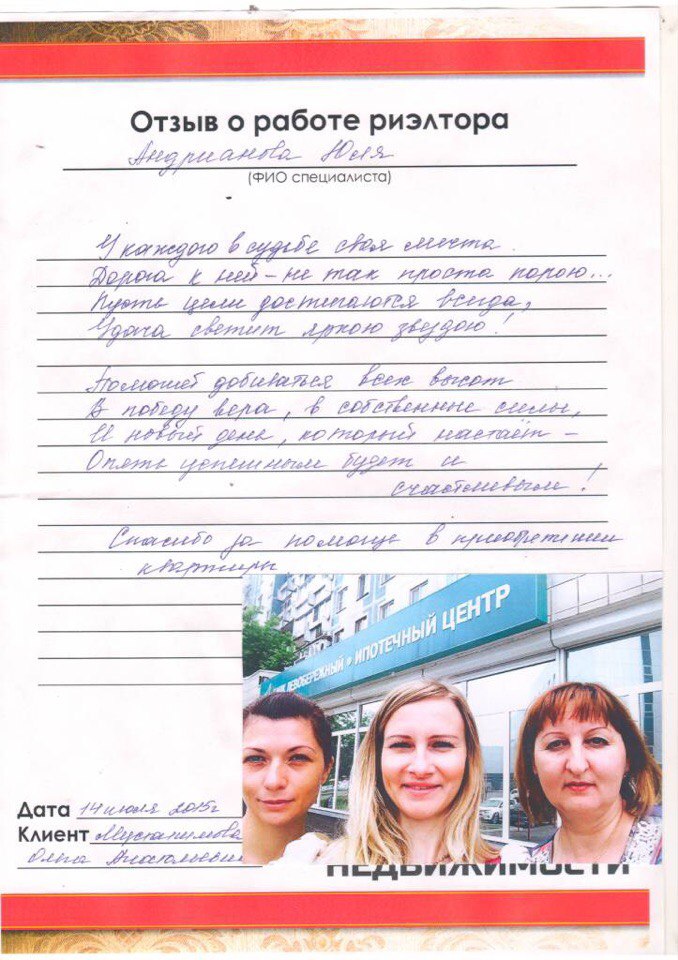 Отзыв о работе риэлтора
Андрианова Юля
(ФИО специалиста)
У каждого в судьбе своя мечта.
Дорога к ней – не так проста порою...
Пусть цели достигаются всегда,
Удача светит яркою звездою!
Поможет добиваться всех высот
В победу вера, в собственные силы,
И новый день, который настаёт –
Опять успешным будет и
счастливым!
Спасибо за помощь в приобретении
квартиры
ЛЕВОБЕРЕЖНЫЙ • ИПОТЕЧНЫЙ ЦЕНТР
Дата 14 июля 2015г
Клиент
Ольга
НЕДВИЖИМОСТИ